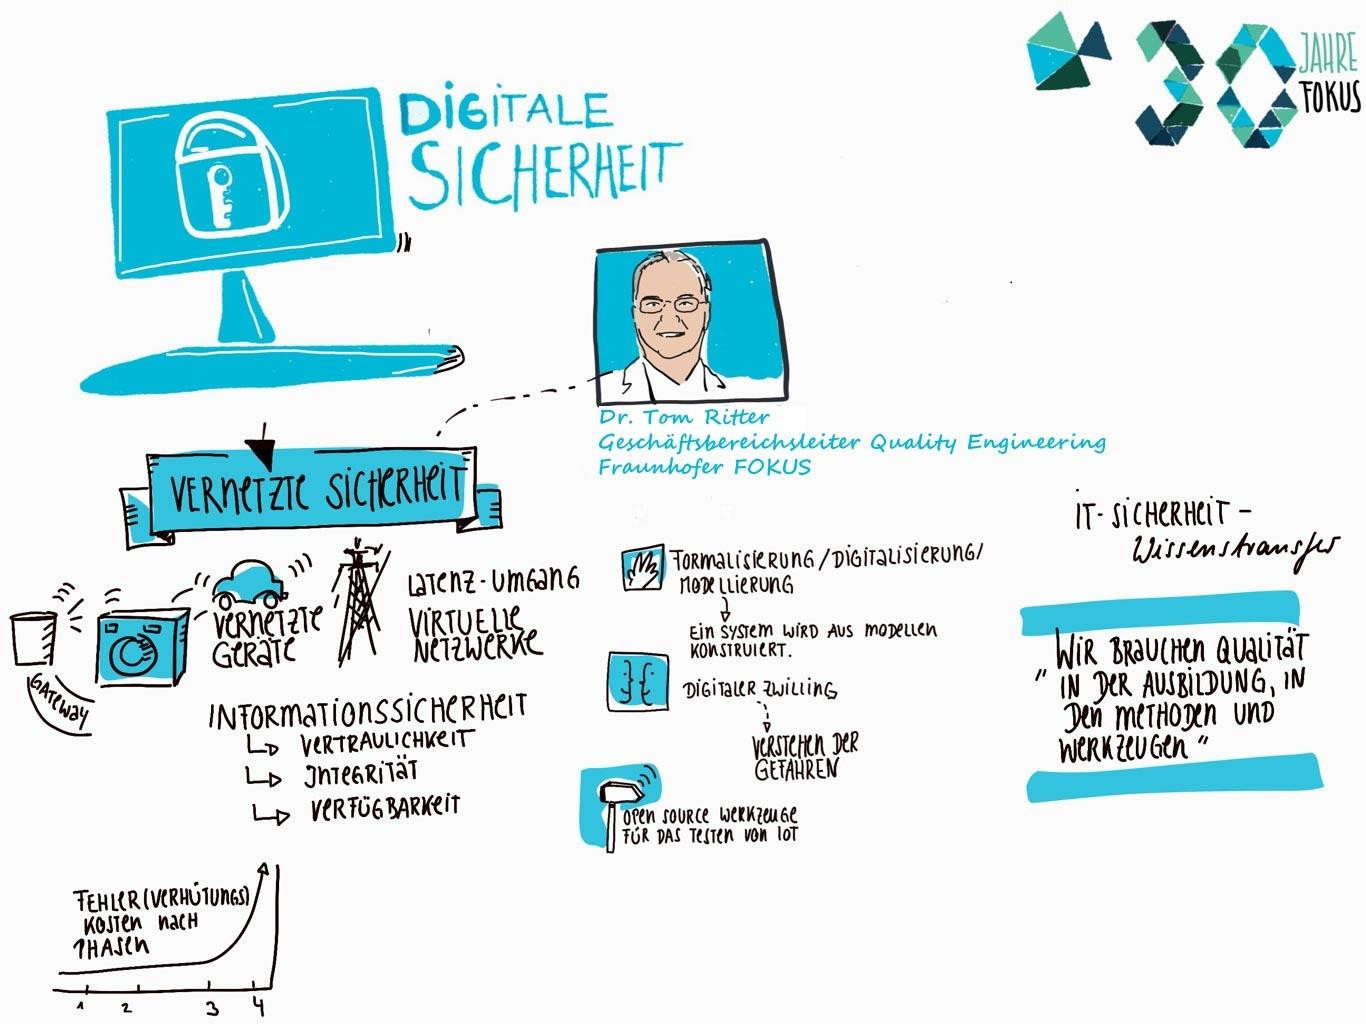 JAHRE
30
FOKUS
DIGITALE
SICHERHEIT
Dr. Tom Ritter
Geschäftsbereichsleiter Quality Engineering
Fraunhofer FOKUS
VERNETZTE SICHERHEIT
VERNETZTE
GERÄTE
GATEWAY
LATENZ-UMGANG
VIRTUELLE
NETZWERKE
INFORMATIONSSICHERHEIT
VERTRAULICHKEIT
INTEGRITÄT
VERFÜGBARKEIT
FEHLER (VERHÜTUNGS)
KOSTEN NACH
PHASEN
1 2 3 4
FORMALISIERUNG/DIGITALISIERUNG/
MODELLIERUNG
EIN SYSTEM WIRD AUS MODELLEN
KONSTRUIERT.
DIGITALER ZWILLING
VERSTEHEN DER
GEFAHREN
OPEN SOURCE WERKZEUGE
FÜR DAS TESTEN VON IOT
IT-SICHERHEIT-
Wissenstransfer
"WIR BRAUCHEN QUALITÄT
IN DER AUSBILDUNG, IN
DEN METHODEN UND
WERKZEUGEN"